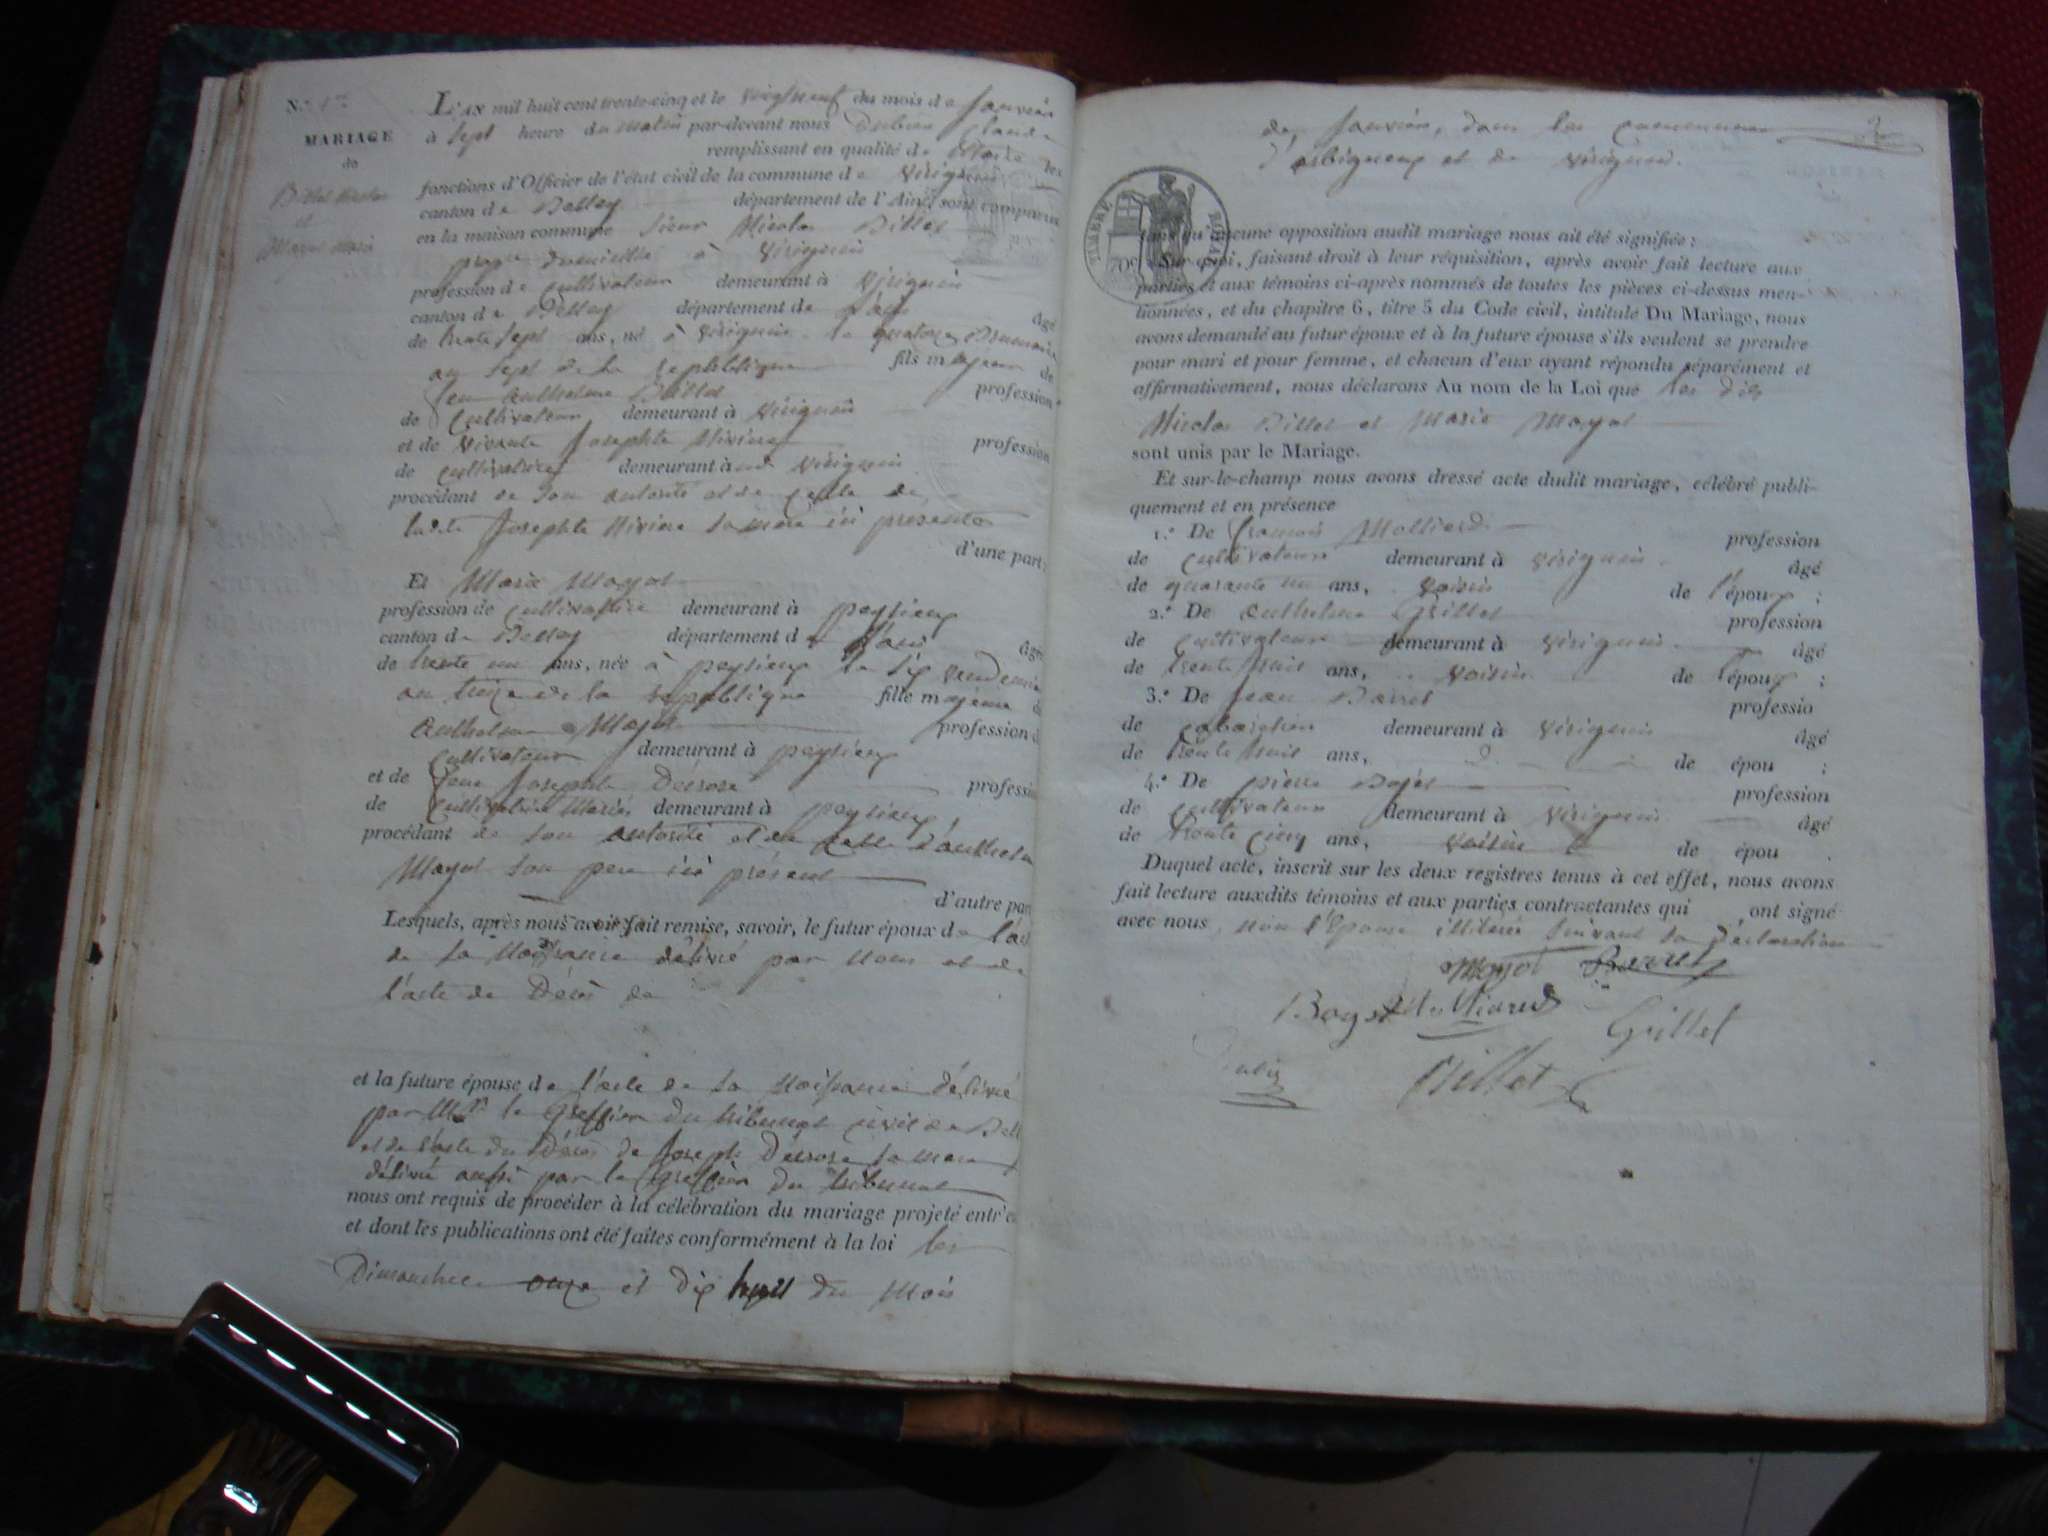 N.º 1er
MARIAGE
de
Billet Nicolas
et
Mayot Marie
L'AN mil huit cent trente-cinq et le vingt neuf du mois de Janvier
à sept heure du matin par-devant nous Dubin Claude
remplissant en qualité de Maire les
fonctions d'Officier de l'état civil de la commune de Virignin
canton de Belley département de l'Ain, sont comparus
en la maison commune sieur Nicolas Billet
domicillié à Virignin
profession de cultivateur demeurant à Virignin
canton de Belley département de l'ain âgé
de trente sept ans, né à Virignin le quatorze Brumaire
an sept de la republique fils majeur de
feu anthelme Billet profession
de Cultivateur demeurant à Virignin
et de vivante Josephte Riviere profession
de cultivatrice demeurant à Virignin
procédant de son autorité et de celle de
ladite Josephte Riviere sa mere ici presente
d'une part;
Et Marie Mayot
profession de cultivatrice demeurant à peyzieux
canton de Belley département d l'ain âgé
de trente un ans, née à peyzieux le six vendemiaire
an treize de la republique fille majeure de
Anthelme Mayot profession d
Cultivateur demeurant à peyzieux
et de feue Josephte Desrose profession
de Cultivatrice demeurant à peyzieux
procédant de son autorité et de celle d'anthelme
Mayot son pere ici présent
d'autre part
Lesquels, après nous avoir fait remise, savoir, le futur époux de l'acte
de sa Naissance délivré par Nous et de
l'acte de Décès de
et la future épouse de l'acte de sa Naissance délivré
par Mr le Greffier du tribunal civil de Bell
et de l'acte du Décès de Joseph Desrose sa mere
délivré aussi par le Greffier du tribunal
nous ont requis de procéder à la célébration du mariage projeté entr'e
et dont les publications ont été faites conformément à la loi les
Dimanches onze et dix huit du Mois
2
de Janvier, dans les communes
d'arbignieux et de virignin.
TIMBRE ROYAL
70c
sans qu'aucune opposition audit mariage nous ait été signifiée;
Sur quoi, faisant droit à leur réquisition, après avoir fait lecture aux
parties et aux témoins ci-après nommés de toutes les pièces ci-dessus men-
tionnées, et du chapitre 6, titre 5 du Code civil, intitulé Du Mariage, nous
avons demandé au futur époux et à la future épouse s'ils veulent se prendre
pour mari et pour femme, et chacun d'eux ayant répondu séparément et
affirmativement, nous déclarons Au nom de la Loi que les dits
Nicolas Billet et Marie Mayot
sont unis par le Mariage.
Et sur-le-champ nous avons dressé acte dudit mariage, célébré publi-
quement et en présence
1.º De francois Molliard profession
de cultivateur demeurant à Virignin âgé
de quarante un ans, voisin de l'époux;
2.º De anthelme Grillet profession
de Cultivateur demeurant à Virignin âgé
de trente huit ans, voisin de l'époux;
3.º De Jean Barret professio
de cabaretier demeurant à Virignin âgé
de trente huit ans, d. de épou;
4.º De pierre Bojet profession
de cultivateur demeurant à Virignin âgé
de trente cinq ans, voisin de épou.
Duquel acte, inscrit sur les deux registres tenus à cet effet, nous avons
fait lecture auxdits témoins et aux parties contractantes qui ont signé
avec nous, non l'Epouse illiterée suivant sa déclaration
Mayot Barret
Bojet Molliard Grillet
Dubin Billet